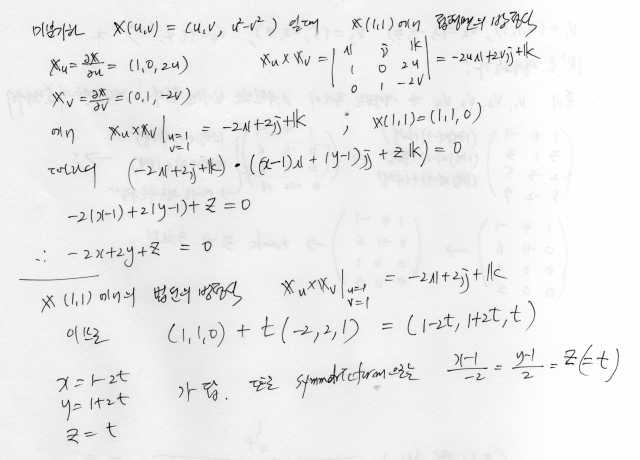 미분기하 𝕏(u,v) = (u, v, u²-v²) 일때 𝕏(1,1)에서 접평면의 방정식
𝕏u = ∂𝕏/∂u = (1,0,2u)
𝕏v = ∂𝕏/∂v = (0,1,-2v)
𝕏u×𝕏v = | 𝕚 𝕛 𝕜 ; 1 0 2u ; 0 1 -2v | = -2u𝕚+2v𝕛+𝕜
에서 𝕏u×𝕏v |u=1 v=1 = -2𝕚+2𝕛+𝕜 ; 𝕏(1,1)=(1,1,0)
따라서 (-2𝕚+2𝕛+𝕜)·((x-1)𝕚+(y-1)𝕛+z𝕜) = 0
-2(x-1)+2(y-1)+z=0
∴ -2x+2y+z = 0
𝕏(1,1)에서의 법선의 방정식 𝕏u×𝕏v |u=1 v=1 = -2𝕚+2𝕛+𝕜
이므로 (1,1,0) + t(-2,2,1) = (1-2t, 1+2t, t)
x = 1-2t
y = 1+2t
z = t
가 답. 또는 symmetric form으로는 (x-1)/-2 = (y-1)/2 = z(=t)